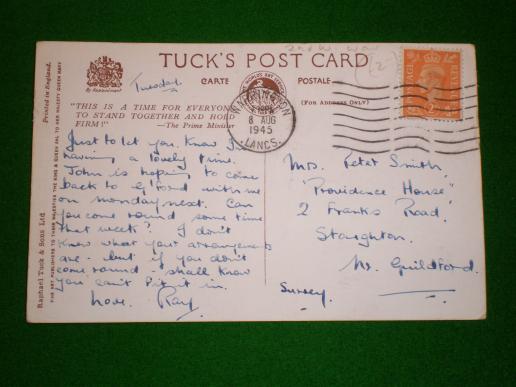 2nd W. War
(2)
TUCK'S POST CARD
By Appointment
CARTE POSTALE
(For Address Only)
Tuesday.
"THIS IS A TIME FOR EVERYONE
TO STAND TOGETHER AND HOLD
FIRM!" —The Prime Minister
8 AUG
1945
LANCS.
POSTAGE REVENUE
Printed in England.
Raphael Tuck & Sons Ltd
FINE ART PUBLISHERS TO THEIR MAJESTIES THE KING & QUEEN AND TO HER MAJESTY QUEEN MARY
Just to let you know I'm
having a lovely time.
John is hoping to come
back to G'ford with me
on monday next. Can
you come round some time
that week? I don't
know what your arrangements
are - but if you don't
come round - shall know
you can't fit it in.
Love. Ray.
Mr. Peter Smith,
"Providence House"
2 Franks Road,
Stoughton.
Nr. Guildford.
Surrey.